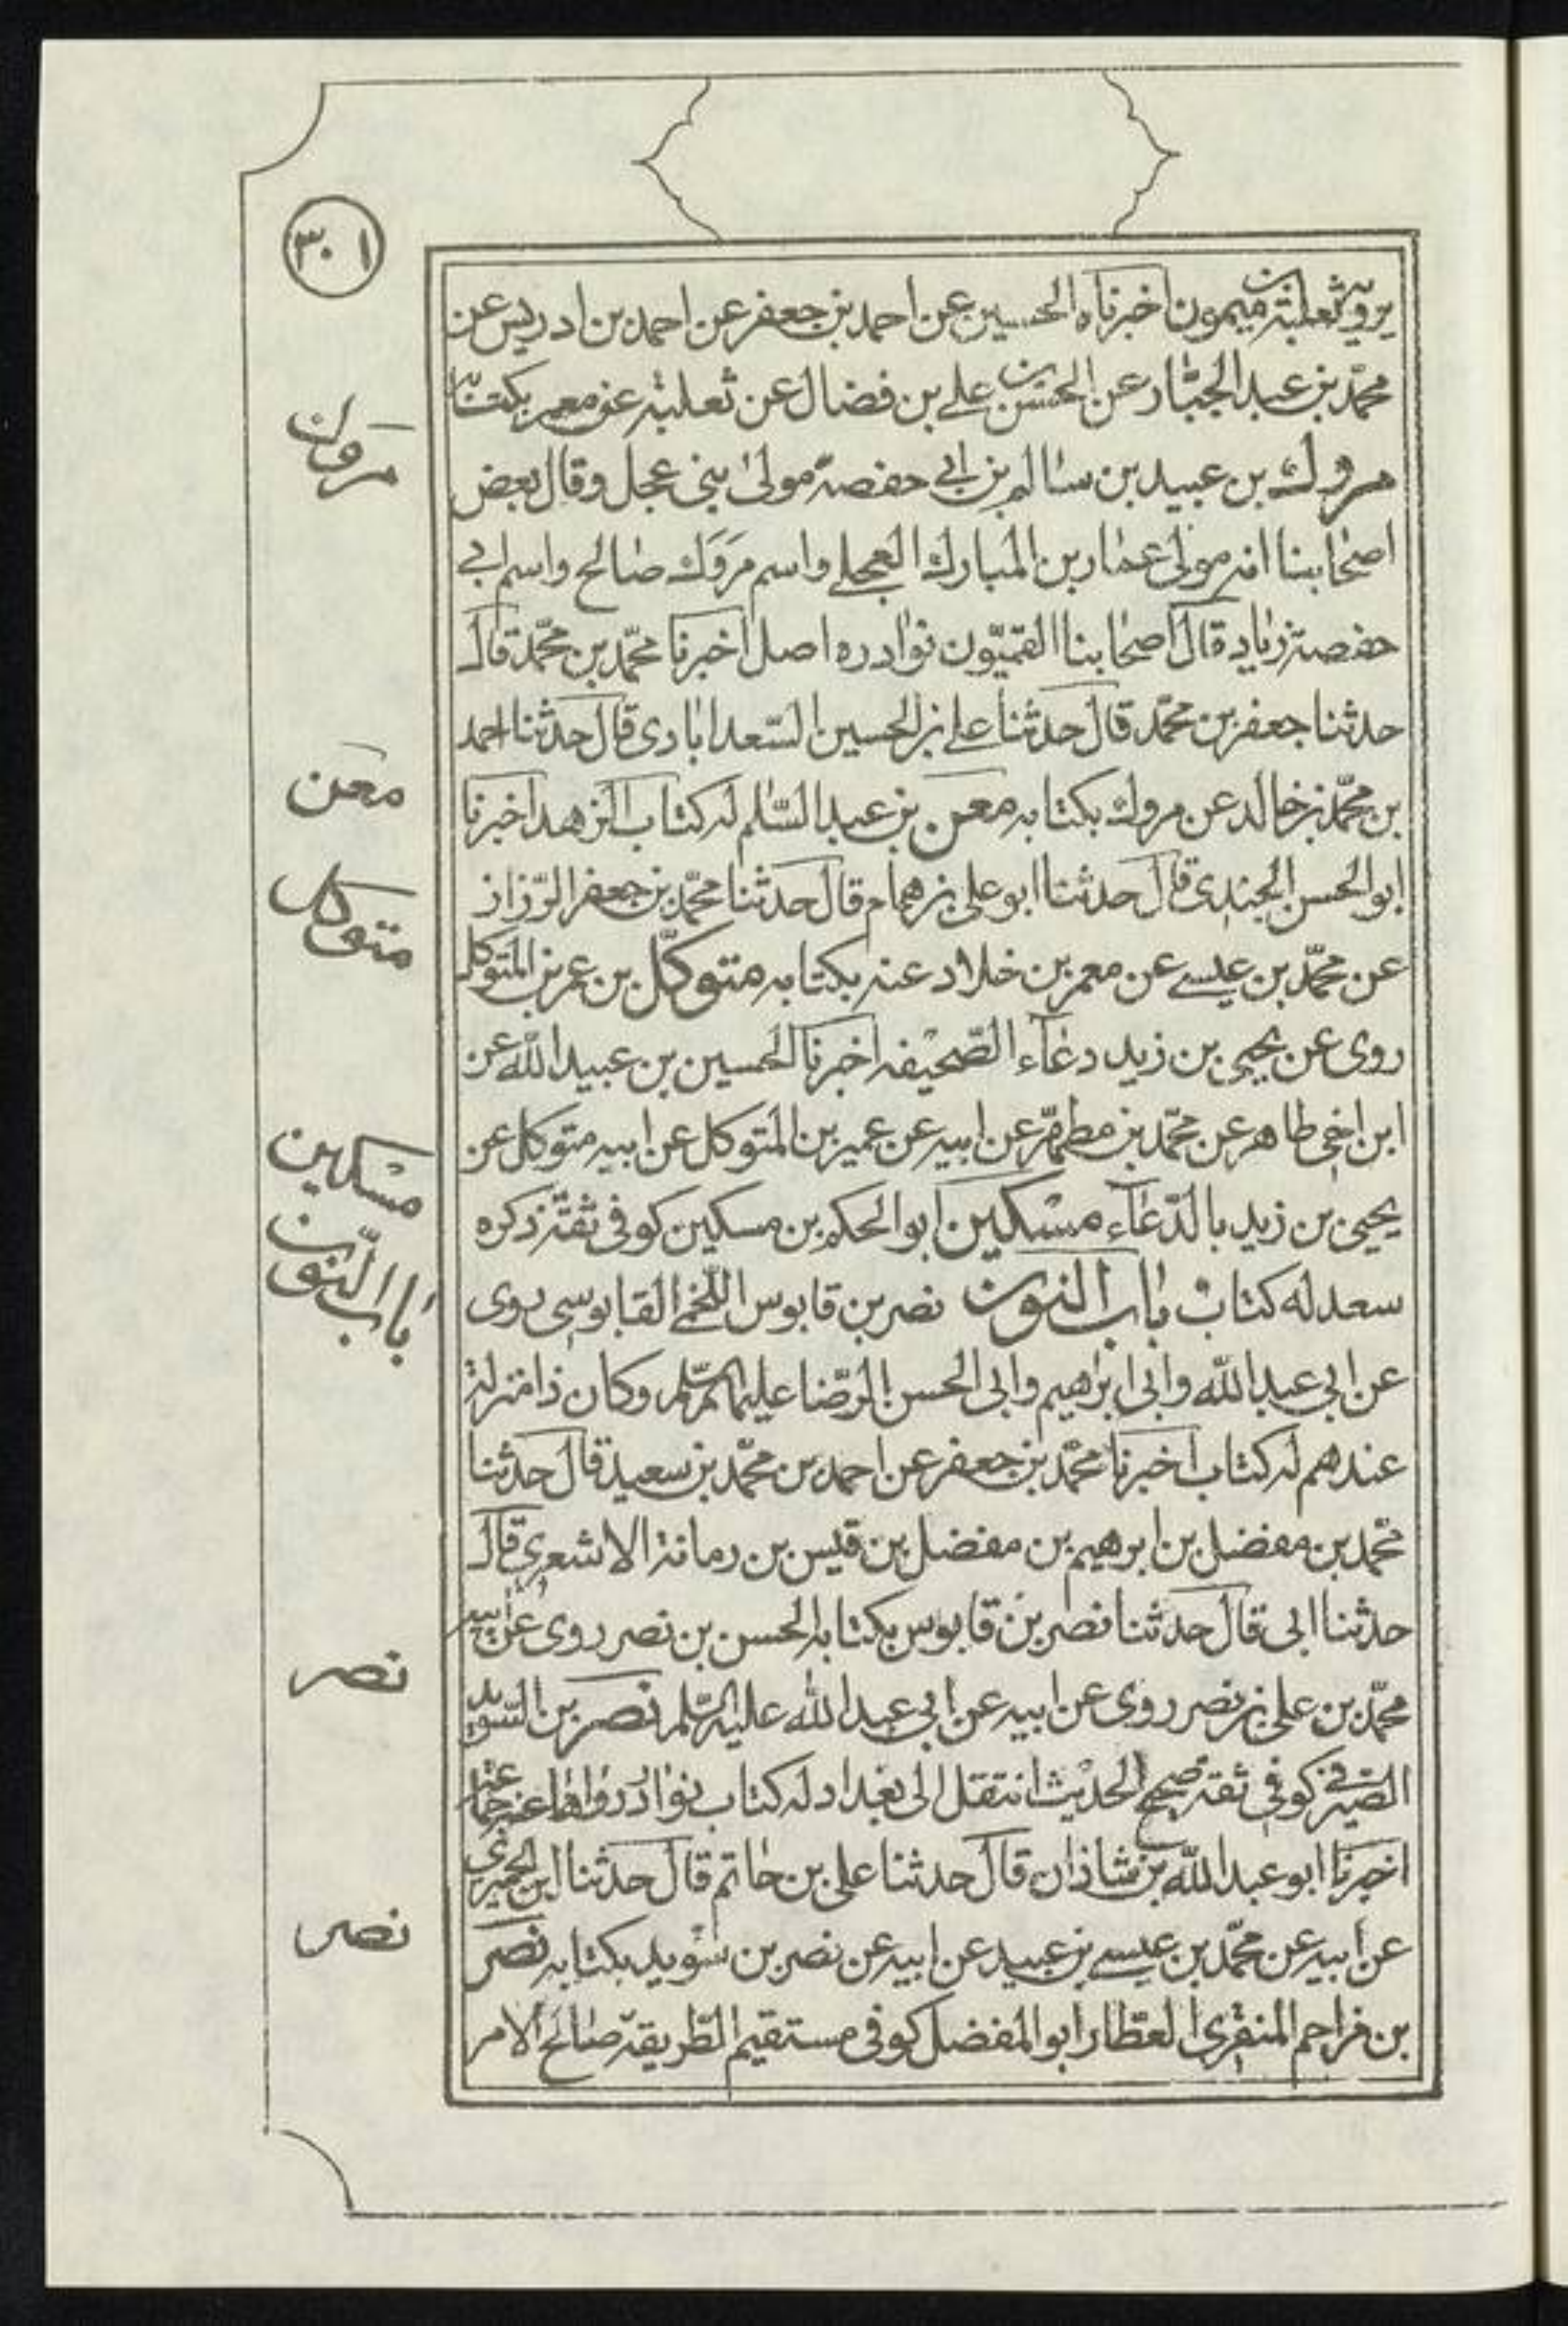 ٣٠١
يرويه ثعلبة بن ميمون اخبرناه الحسين عن احمد بن جعفر عن احمد بن ادريس عن
محمّد بن عبد الجبّار عن الحسن بن علي بن فضال عن ثعلبة عن معمر بكتابه
مروك بن عبيد بن سالم بن ابي حفصة مولى بني عجل وقال بعض
اصحابنا انه مولى عمّار بن المبارك العجلي واسم مَروَك صالح واسم ابي
حفصة زياد قال اصحابنا القمّيّون نوادره اصل اخبرنا محمّد بن محمّد قال
حدثنا جعفر بن محمّد قال حدثنا علي بن الحسين السّعدابادى قال حدثنا احمد
بن محمّد بن خالد عن مروك بكتابه معن بن عبد السّلم له كتاب الزهد اخبرنا
ابو الحسن الجندى قال حدثنا ابو علي بن همام قال حدثنا محمّد بن جعفر الرّزاز
عن محمّد بن عيسى عن معمر بن خلاد عنه بكتابه متوكّل بن عمر بن المتوكل
روى عن يحيى بن زيد دعاء الصّحيفه اخبرنا الحسين بن عبيد اللّه عن
ابن اخي طاهر عن محمّد بن مطهّر عن ابيه عن عمير بن المتوكل عن ابيه متوكل عن
يحيى بن زيد بالدّعاء مسكين ابو الحكم بن مسكين كوفى ثقة ذكره
سعد له كتاب باب النون نصر بن قابوس اللّخمي القابوسى روى
عن ابي عبد اللّه وابى ابرهيم وابى الحسن الرّضا عليهم السّلم وكان ذا منزلة
عندهم له كتاب اخبرنا محمّد بن جعفر عن احمد بن محمّد بن سعيد قال حدثنا
محّمد بن مفضل بن ابرهيم بن مفضل بن قيس بن رمانة الاشعرى قال
حدثنا ابى قال حدثنا نصر بن قابوس بكتابه الحسن بن نصر روى عن ابيه
محمّد بن علي بن نصر روى عن ابيه عن ابي عبد اللّه عليه السّلم نصر بن السّويد
الصّيرفي كوفى ثقة صحيح الحديث انتقل الى بغداد له كتاب نوادر رواها عنه جماعة
اخبرنا ابو عبد اللّه بن شاذان قال حدثنا علي بن حاتم قال حدثنا ابن الحميرى
عن ابيه عن محمّد بن عيسى بن عبيد عن ابيه عن نصر بن سويد بكتابه نصر
بن مزاحم المنقرى العطّار ابو المفضل كوفى مستقيم الطّريقة صالح الامر
مروك
معن
متوكل
مسكين
باب النّون
نصر
نصر